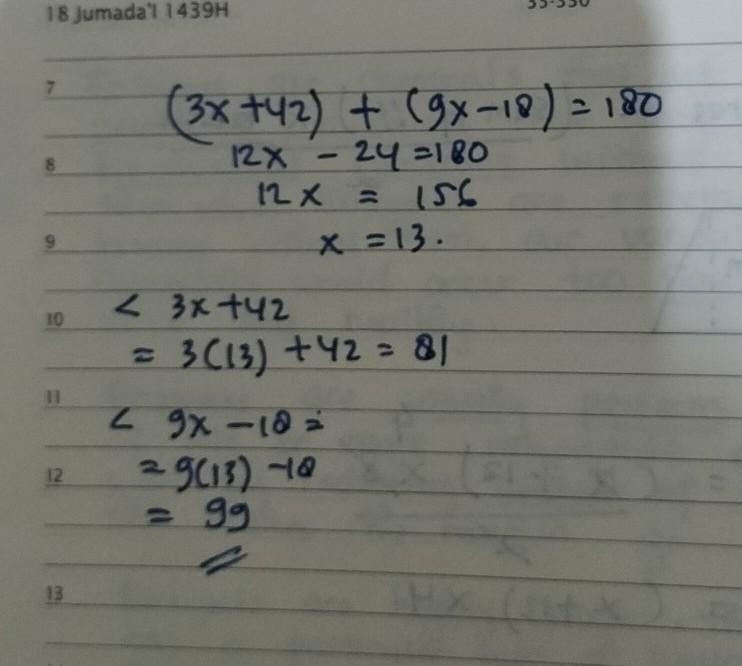 18 Jumada'l 1439H
7
(3x+42) + (9x-18) = 180
8
12x - 24 = 180
12x = 156
9
x = 13.
10
< 3x+42
= 3(13) +42 = 81
11
< 9x -18 =
12
= 9(13) -18
= 99
13